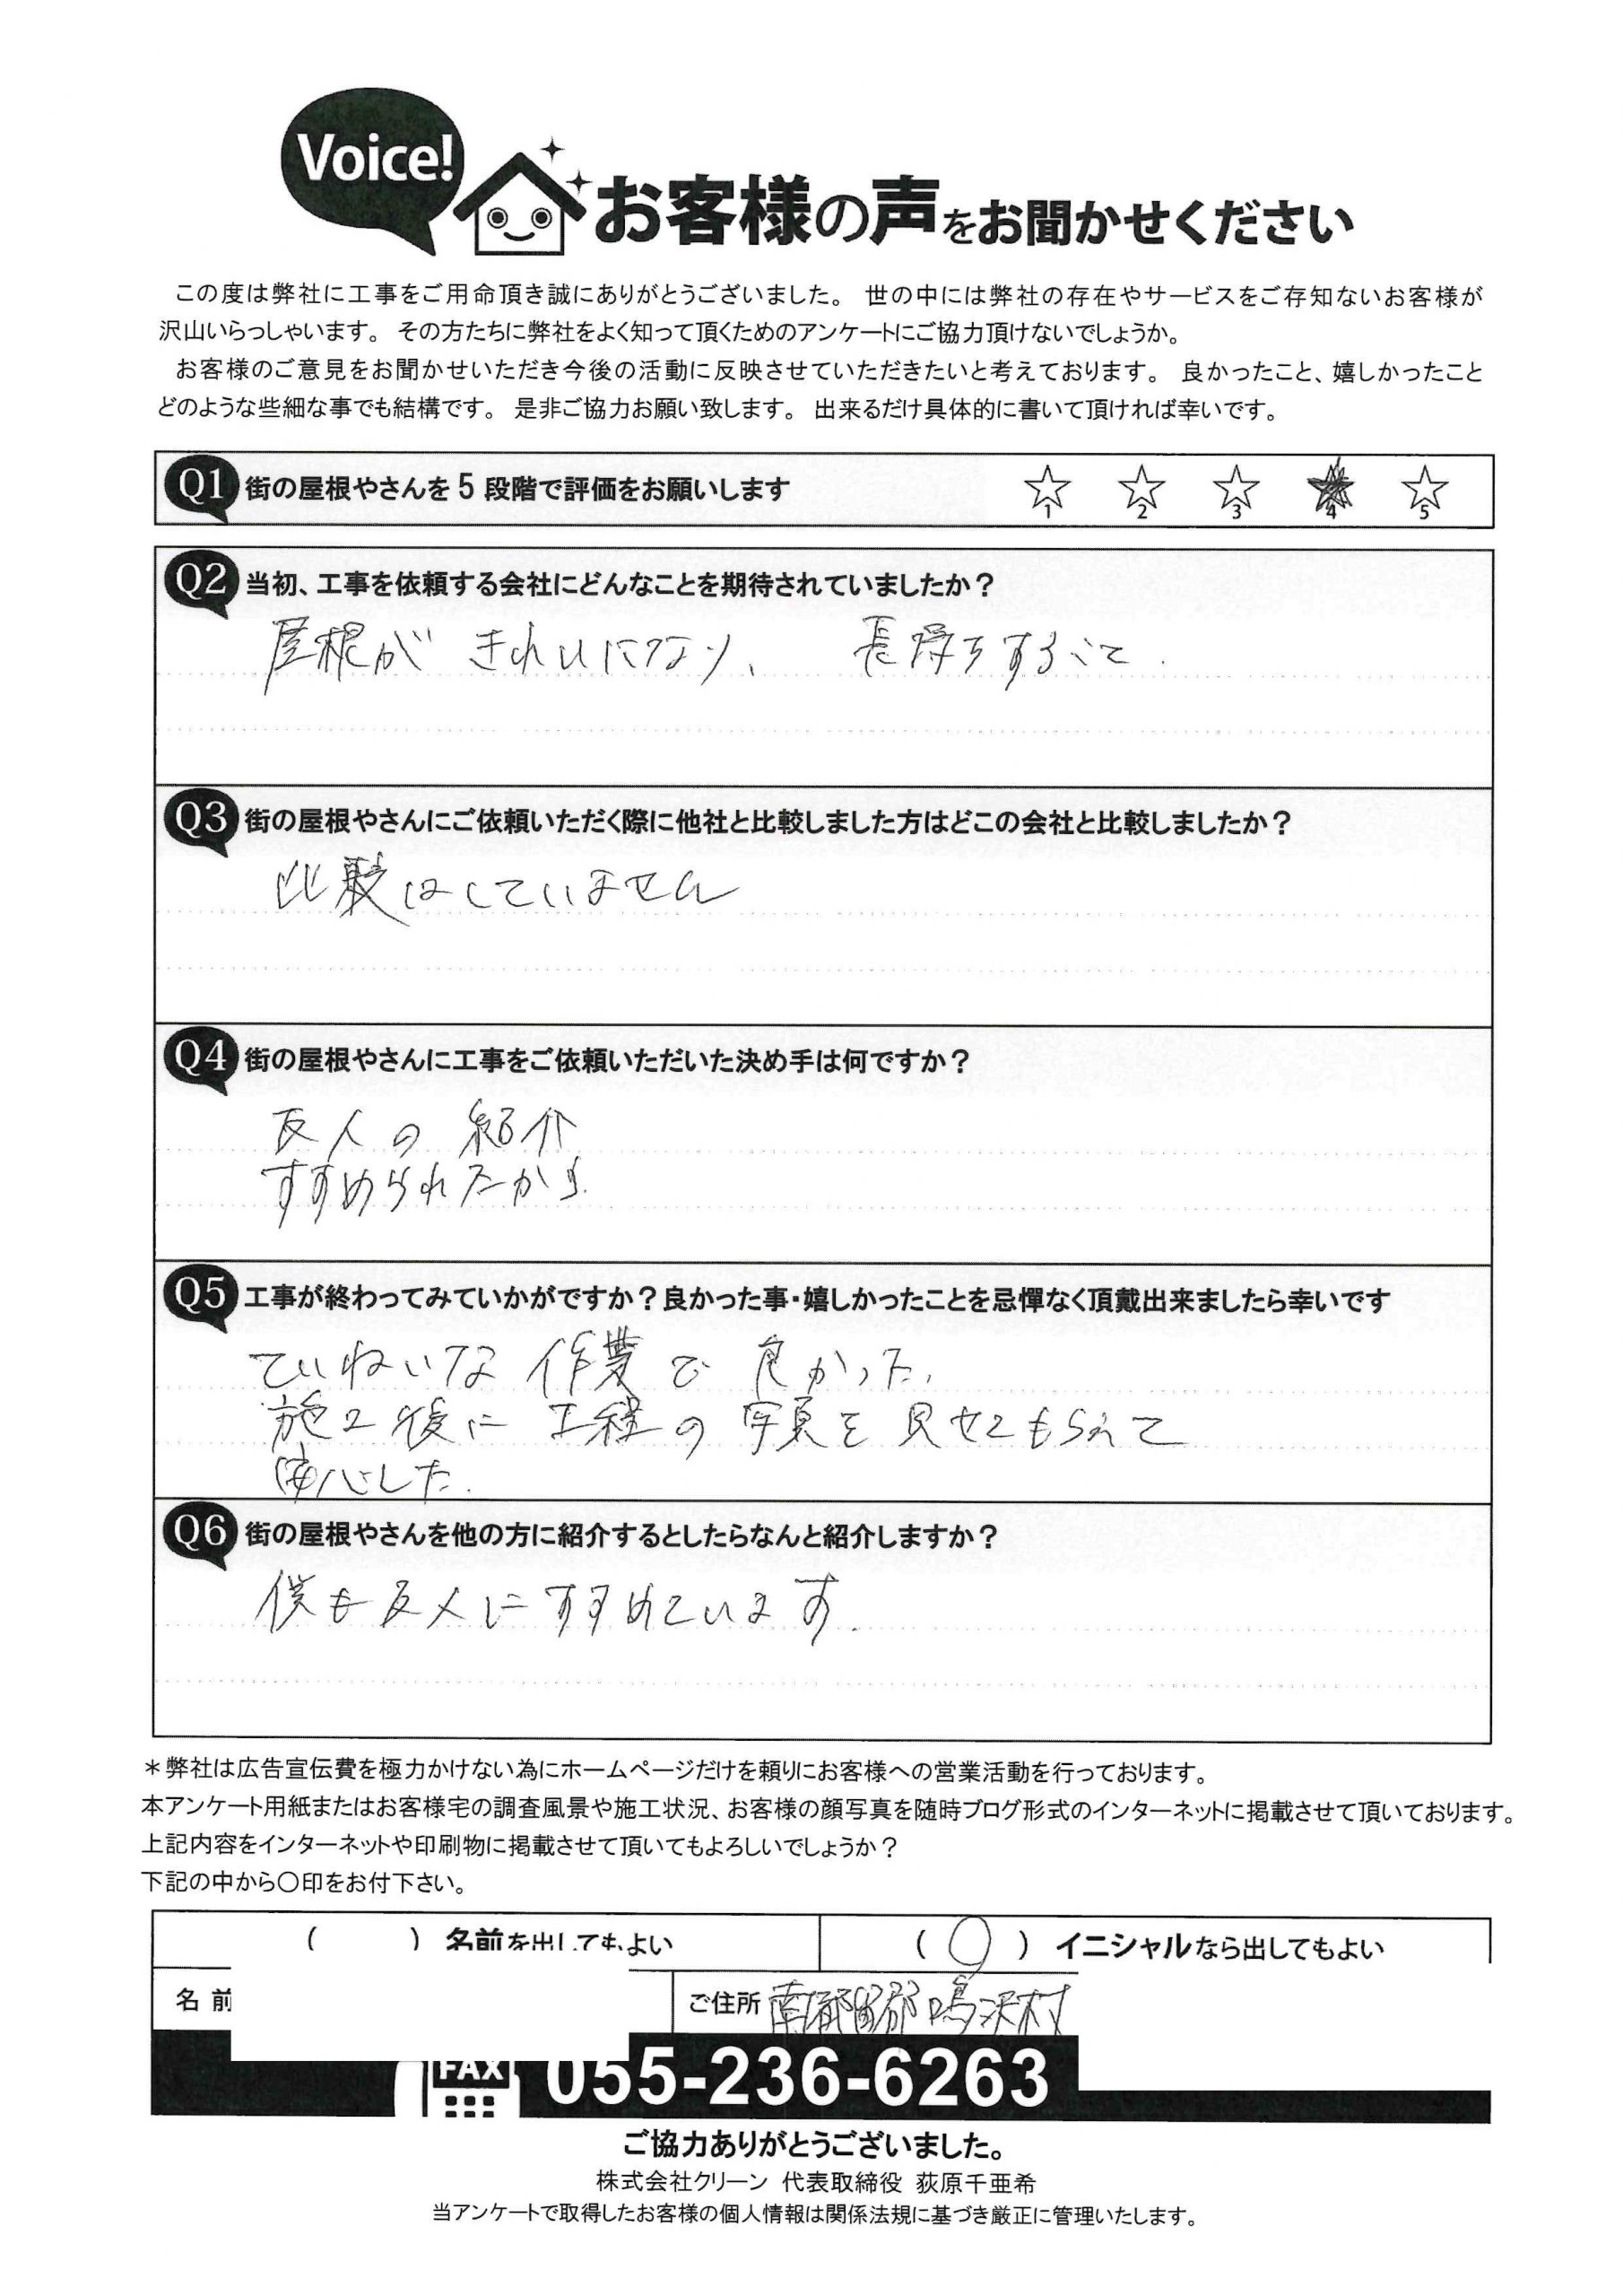 Voice!
お客様の声をお聞かせください
この度は弊社に工事をご用命頂き誠にありがとうございました。 世の中には弊社の存在やサービスをご存知ないお客様が
沢山いらっしゃいます。 その方たちに弊社をよく知って頂くためのアンケートにご協力頂けないでしょうか。
お客様のご意見をお聞かせいただき今後の活動に反映させていただきたいと考えております。 良かったこと、嬉しかったこと
どのような些細な事でも結構です。 是非ご協力お願い致します。 出来るだけ具体的に書いて頂ければ幸いです。
Q1 街の屋根やさんを5段階で評価をお願いします ☆1 ☆2 ☆3 ★4 ☆5
Q2 当初、工事を依頼する会社にどんなことを期待されていましたか？
屋根が きれいになり、 長持ちすること.
Q3 街の屋根やさんにご依頼いただく際に他社と比較しました方はどこの会社と比較しましたか？
比較はしていません
Q4 街の屋根やさんに工事をご依頼いただいた決め手は何ですか？
友人の 紹介
すすめられたから.
Q5 工事が終わってみていかがですか？良かった事・嬉しかったことを忌憚なく頂戴出来ましたら幸いです
ていねいな 作業で 良かった.
施工後に 工程の 写真を 見せてもらえて
安心した.
Q6 街の屋根やさんを他の方に紹介するとしたらなんと紹介しますか？
僕も友人にすすめています.
＊弊社は広告宣伝費を極力かけない為にホームページだけを頼りにお客様への営業活動を行っております。
本アンケート用紙またはお客様宅の調査風景や施工状況、お客様の顔写真を随時ブログ形式のインターネットに掲載させて頂いております。
上記内容をインターネットや印刷物に掲載させて頂いてもよろしいでしょうか？
下記の中から〇印をお付下さい。
（ ）名前を出してもよい （○）イニシャルなら出してもよい
名前 ご住所 南都留郡鳴沢村
FAX 055-236-6263
ご協力ありがとうございました。
株式会社クリーン 代表取締役 荻原千亜希
当アンケートで取得したお客様の個人情報は関係法規に基づき厳正に管理いたします。